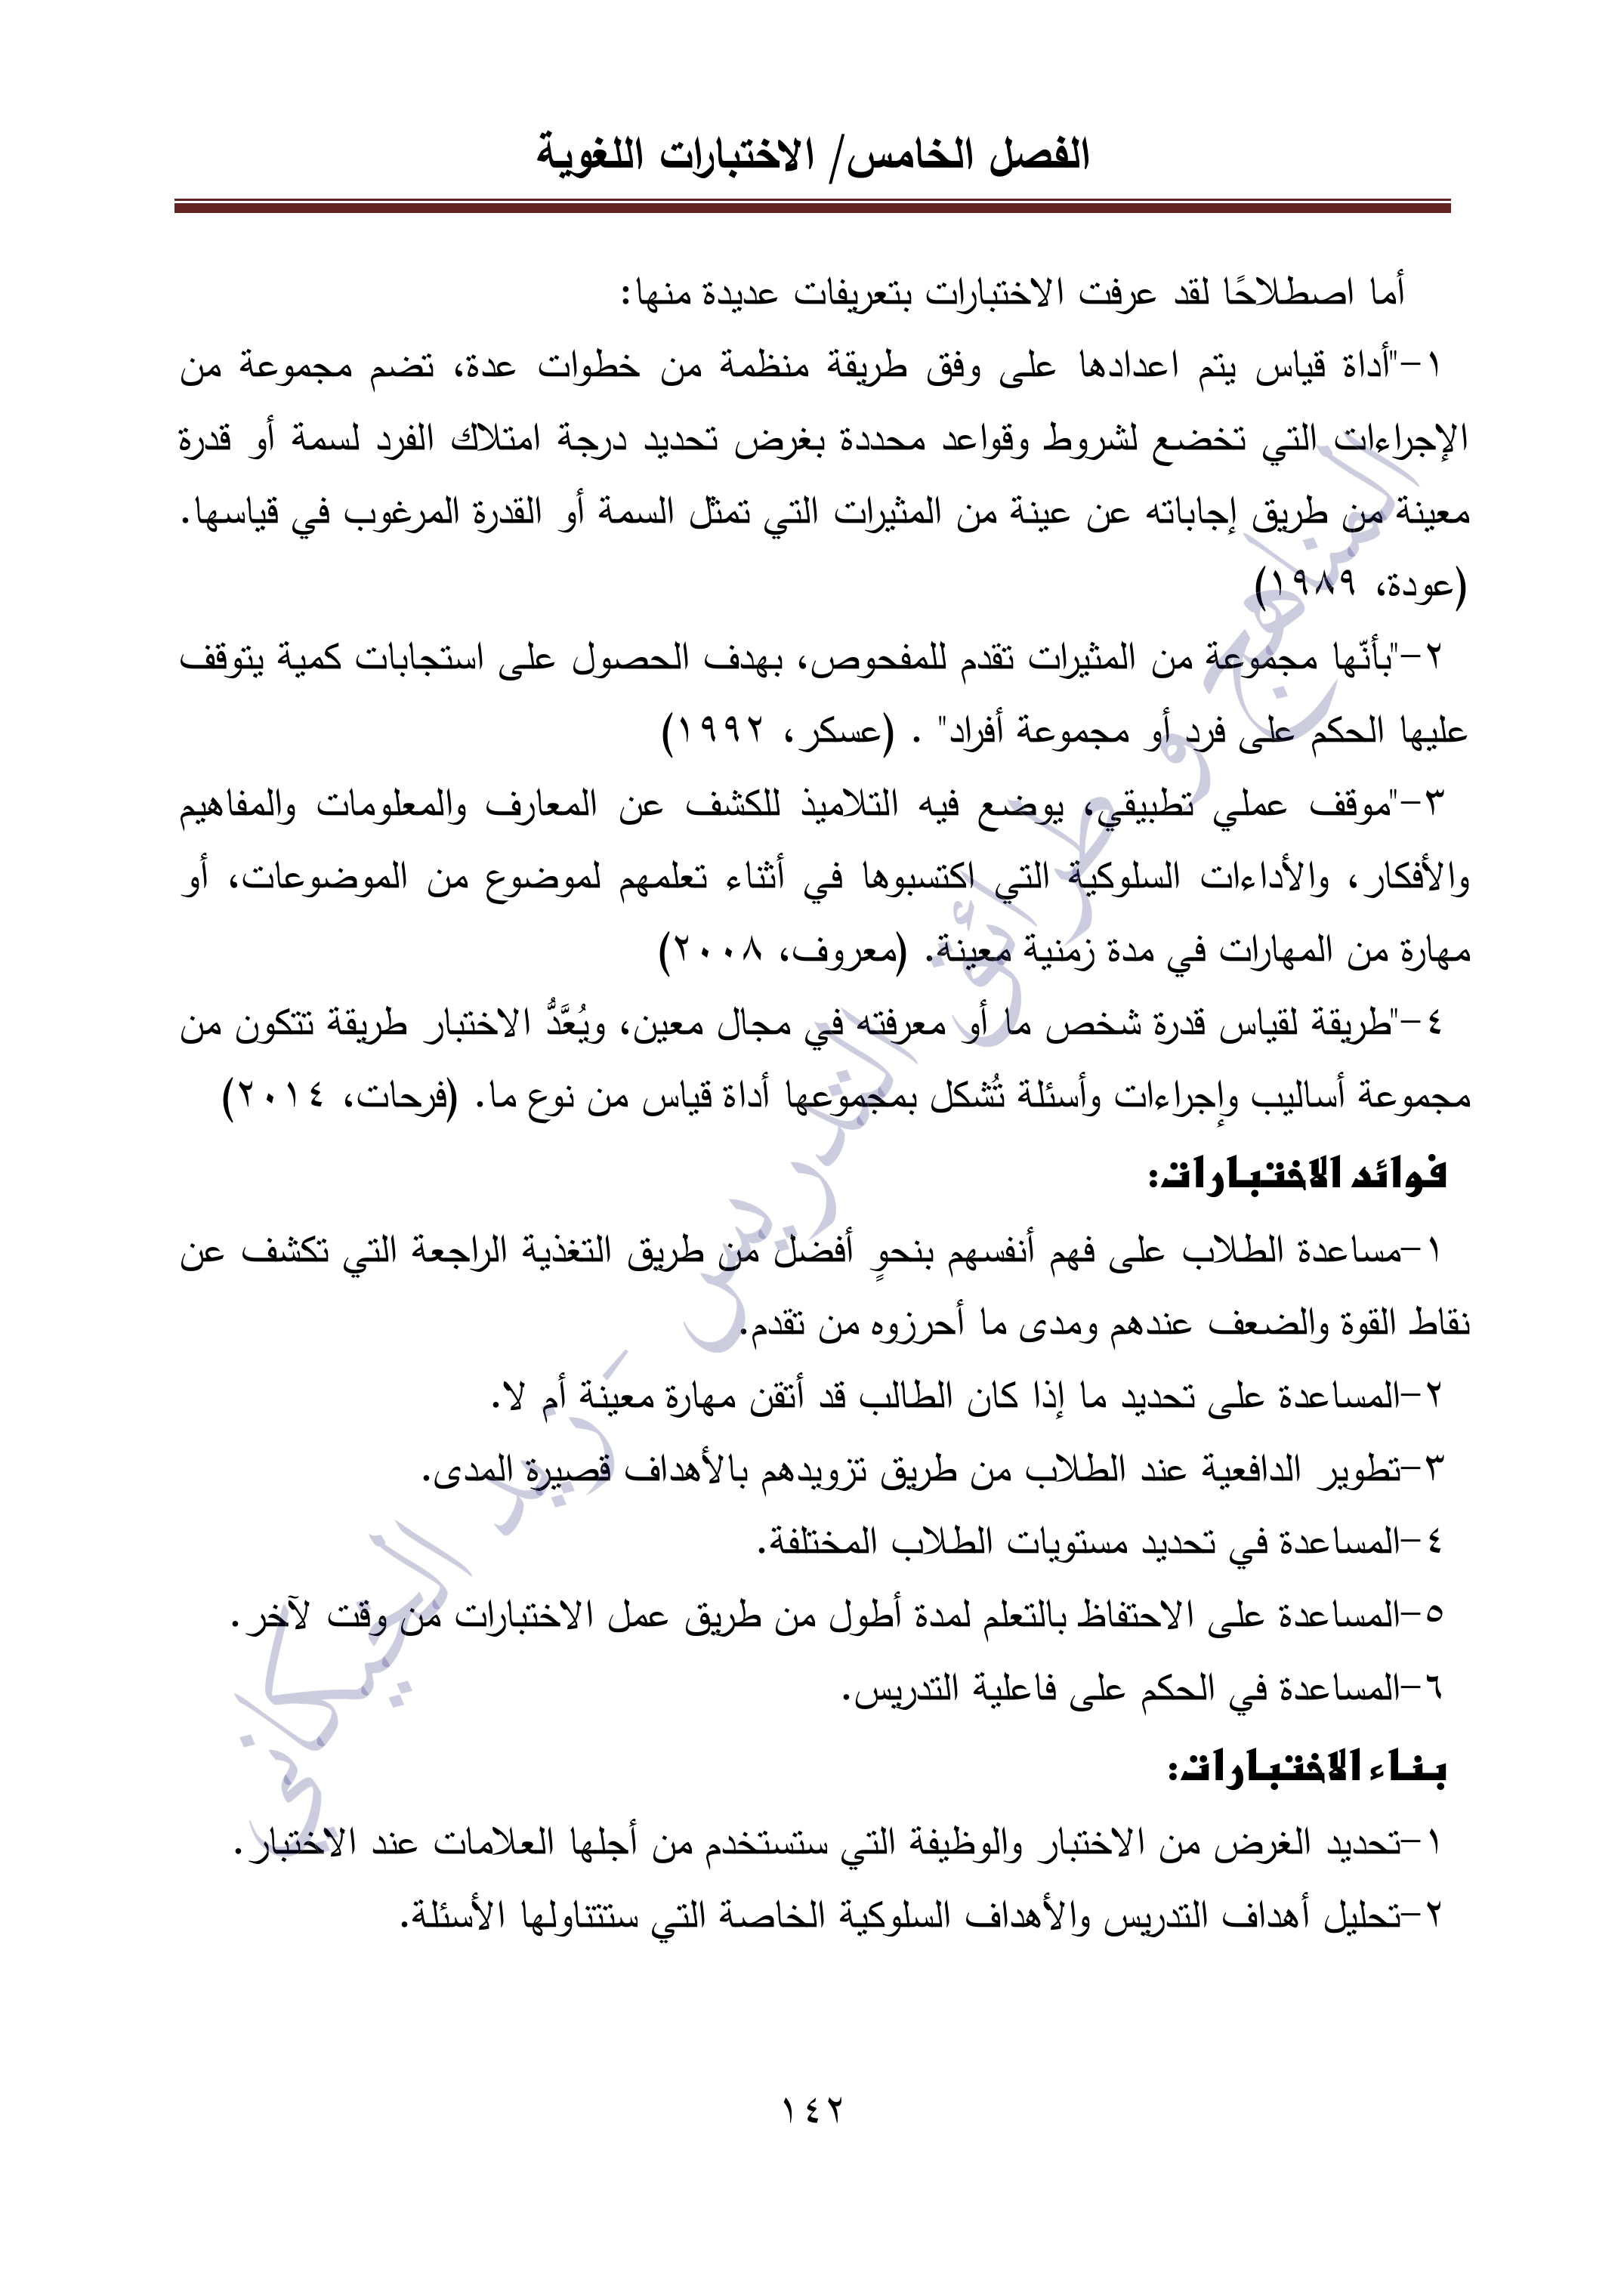 الفصل الخامس/ الاختبارات اللغوية
أما اصطلاحًا لقد عرفت الاختبارات بتعريفات عديدة منها:
١-"أداة قياس يتم اعدادها على وفق طريقة منظمة من خطوات عدة، تضم مجموعة من
الإجراءات التي تخضع لشروط وقواعد محددة بغرض تحديد درجة امتلاك الفرد لسمة أو قدرة
معينة من طريق إجاباته عن عينة من المثيرات التي تمثل السمة أو القدرة المرغوب في قياسها.
(عودة، ١٩٨٩)
٢-"بأنّها مجموعة من المثيرات تقدم للمفحوص، بهدف الحصول على استجابات كمية يتوقف
عليها الحكم على فرد أو مجموعة أفراد" . (عسكر، ١٩٩٢)
٣-"موقف عملي تطبيقي، يوضع فيه التلاميذ للكشف عن المعارف والمعلومات والمفاهيم
والأفكار، والأداءات السلوكية التي اكتسبوها في أثناء تعلمهم لموضوع من الموضوعات، أو
مهارة من المهارات في مدة زمنية معينة. (معروف، ٢٠٠٨)
٤-"طريقة لقياس قدرة شخص ما أو معرفته في مجال معين، ويُعَّدُّ الاختبار طريقة تتكون من
مجموعة أساليب وإجراءات وأسئلة تُشكل بمجموعها أداة قياس من نوع ما. (فرحات، ٢٠١٤)
فوائد الاختبارات:
١-مساعدة الطلاب على فهم أنفسهم بنحوٍ أفضل من طريق التغذية الراجعة التي تكشف عن
نقاط القوة والضعف عندهم ومدى ما أحرزوه من تقدم.
٢-المساعدة على تحديد ما إذا كان الطالب قد أتقن مهارة معينة أم لا.
٣-تطوير الدافعية عند الطلاب من طريق تزويدهم بالأهداف قصيرة المدى.
٤-المساعدة في تحديد مستويات الطلاب المختلفة.
٥-المساعدة على الاحتفاظ بالتعلم لمدة أطول من طريق عمل الاختبارات من وقت لآخر.
٦-المساعدة في الحكم على فاعلية التدريس.
بناء الاختبارات:
١-تحديد الغرض من الاختبار والوظيفة التي ستستخدم من أجلها العلامات عند الاختبار.
٢-تحليل أهداف التدريس والأهداف السلوكية الخاصة التي ستتناولها الأسئلة.
١٤٢
المناهج و طرائق التدريس -